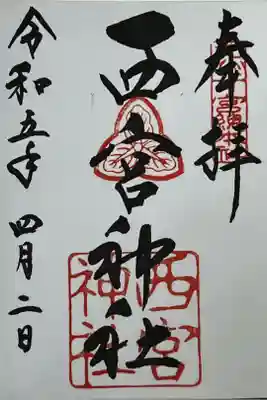 奉拝
西宮神社
令和五年 四月二日
西宮
神社